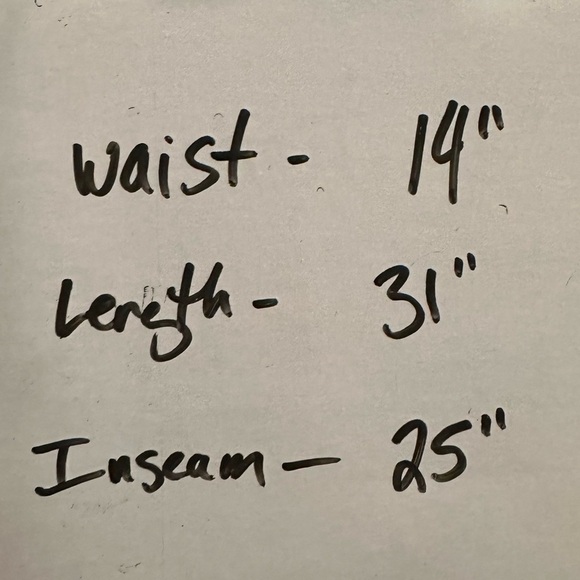 Waist - 14"
Length - 31"
Inseam - 25"